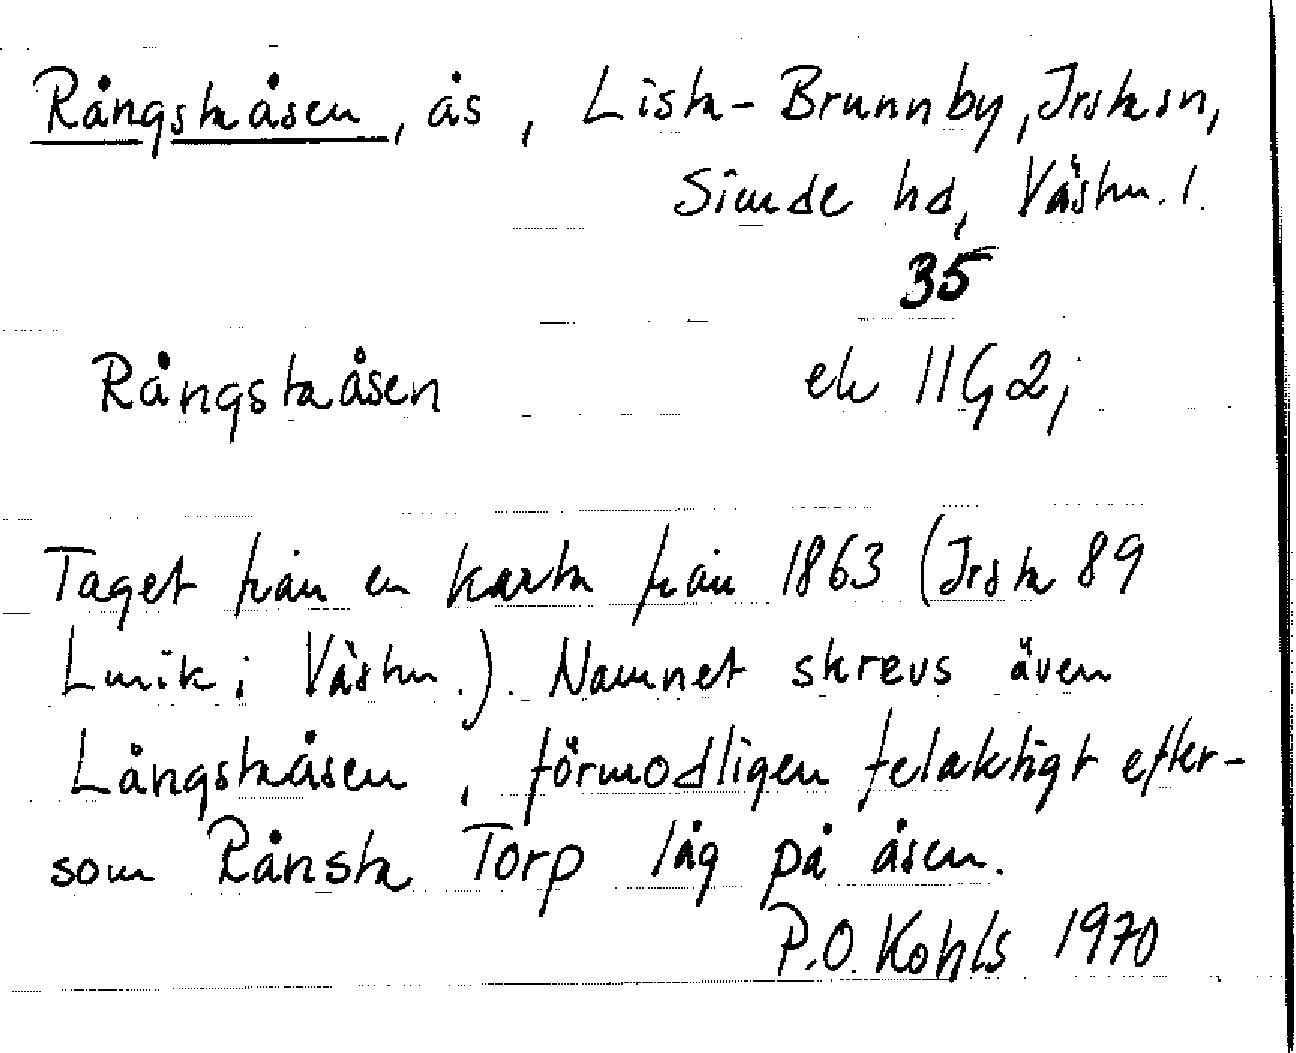 Rångstaåsen, ås, Lista-Brunnby, Irsta sn,
Siende hd, Västm. l.
35
Rångstaåsen ek 11G2j
Taget från en karta från 1863 (Irsta 89
Lmik i Västm.). Namnet skrevs även
Långstaåsen, förmodligen felaktigt efter-
som Rånsta Torp låg på åsen.
P.O. Kohls 1970